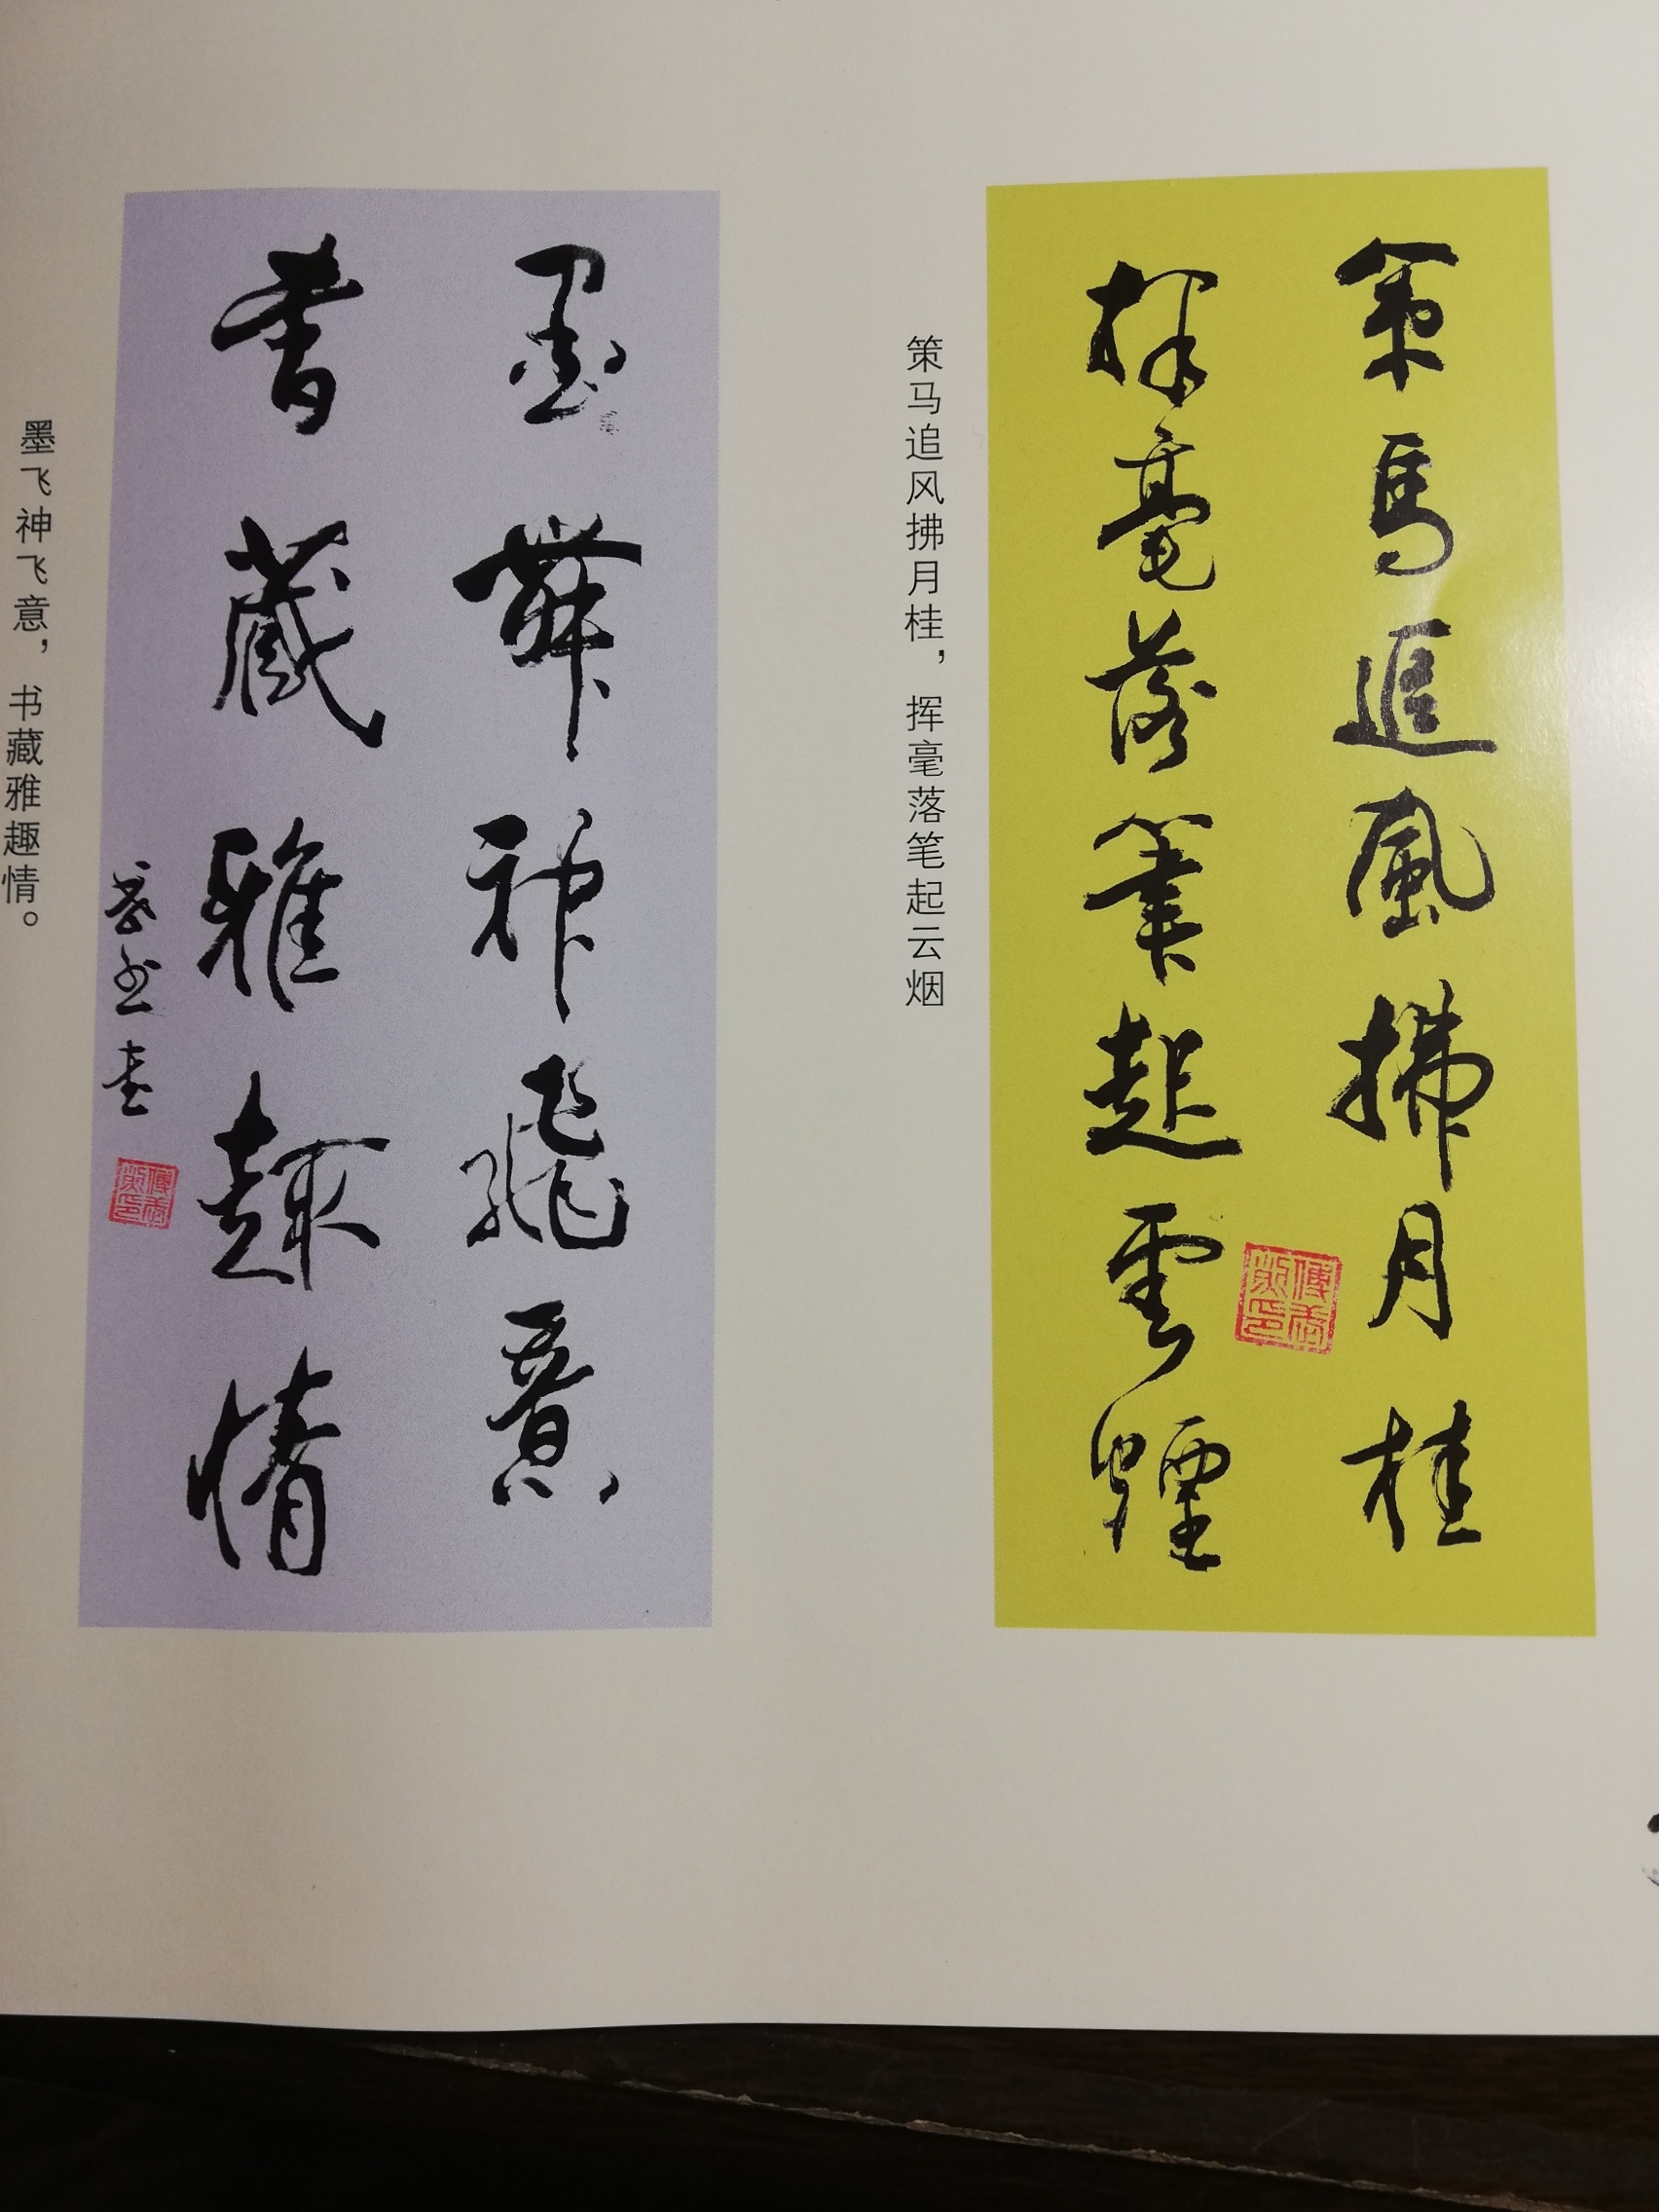 策馬追風拂月桂
揮毫落筆起雲煙
策马追风拂月桂，挥毫落笔起云烟
墨舞神飛意
書藏雅趣情
墨飞神飞意，书藏雅趣情。